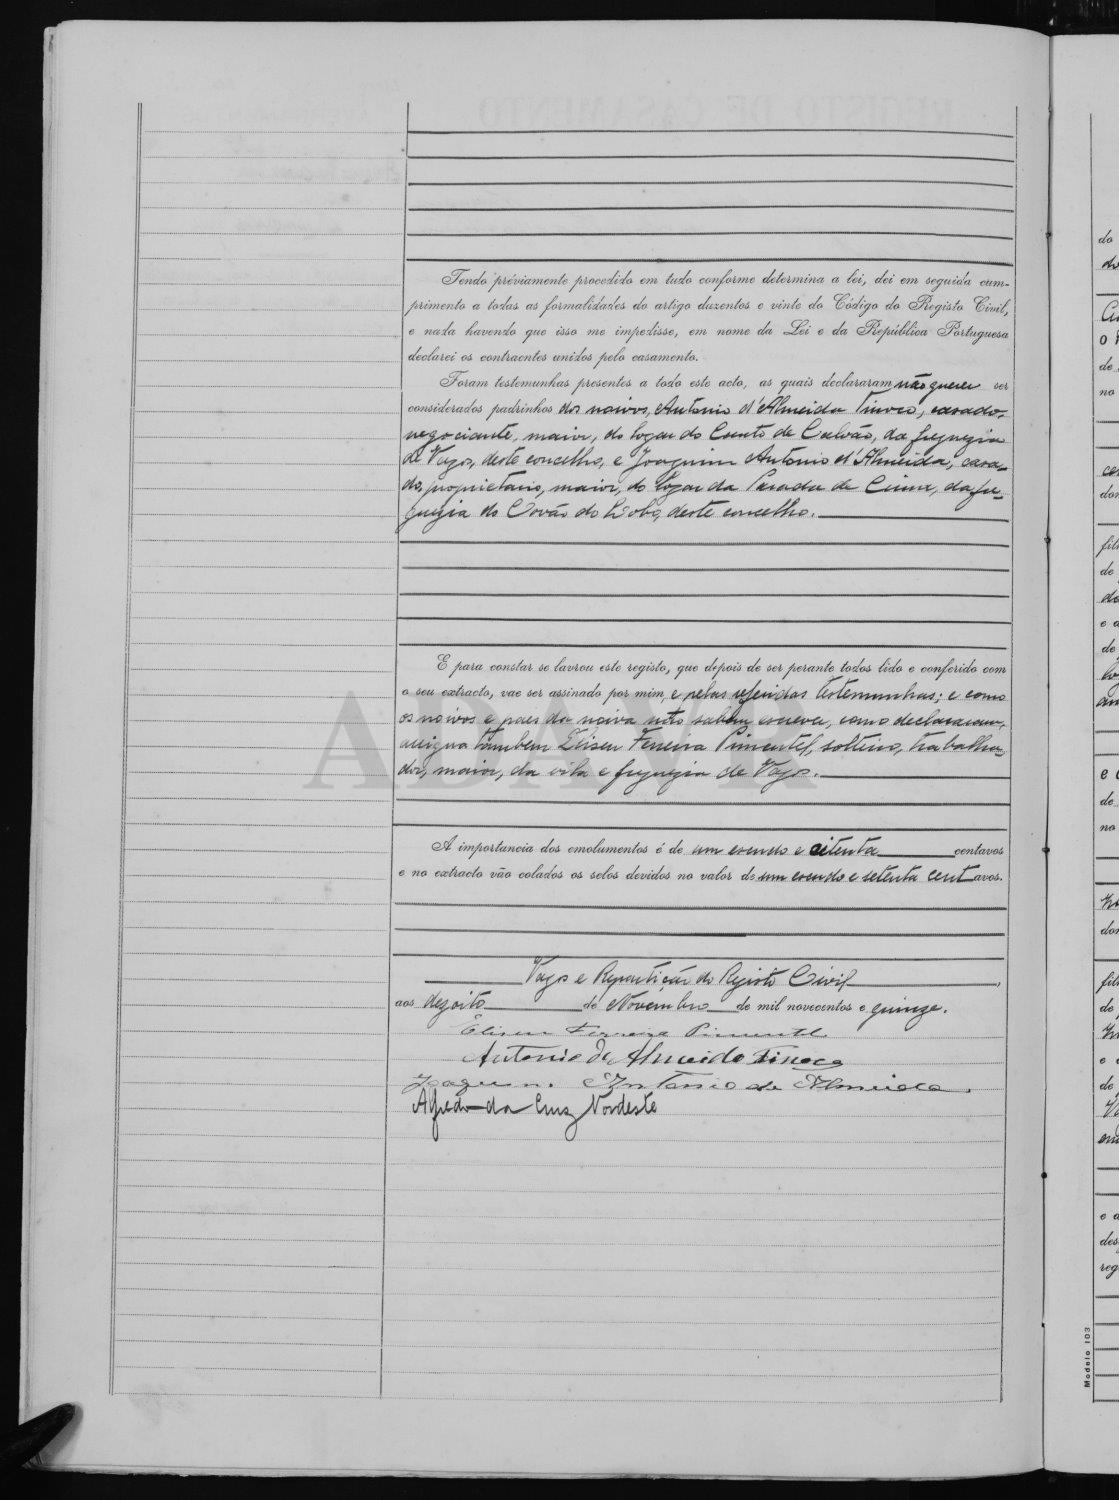 Tendo préviamente procedido em tudo conforme determina a lei, dei em seguida cum-
primento a todas as formalidades do artigo duzentos e vinte do Código do Registo Civil,
e nada havendo que isso me impedisse, em nome da Lei e da República Portuguesa
declarei os contraentes unidos pelo casamento.
Foram testemunhas presentes a todo este acto, as quais declararam não querer ser
considerados padrinhos dos noivos, Antonio d'Almeida Tinoco, casado,
negociante, maior, do logar do Couto de Calvão, da freguezia
de Vagos, deste concelho, e Joaquim Antonio d'Almeida, casa-
do, proprietario, maior, do logar da Parada de Cima, da fre-
guezia do Covão do Lobo, deste concelho.
E para constar se lavrou este registo, que depois de ser perante todos lido e conferido com
o seu extracto, vae ser assinado por mim, e pelas referidas testemunhas; e como
os noivos e paes da noiva não sabem escrever, como declararam,
assigna tambem Eliseu Ferreira Pimentel, solteiro, trabalha-
dor, maior, da vila e freguezia de Vagos.
A importancia dos emolumentos é de um escudo e setenta centavos
e no extracto vão colados os selos devidos no valor de um escudo e setenta centavos.
Vagos e Repartição do Registo Civil,
aos dezoito de Novembro de mil novecentos e quinze.
Eliseu Ferreira Pimentel
Antonio de Almeida Tinoco
Joaquim Antonio de Almeida.
Alfredo da Cruz Nordeste
ADAVR
Modelo 103